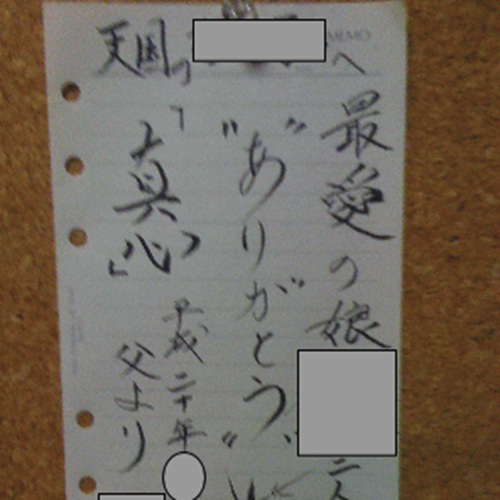 天国の
へ
最愛の娘
"ありがとう"
「真心」
平成二十年
父より